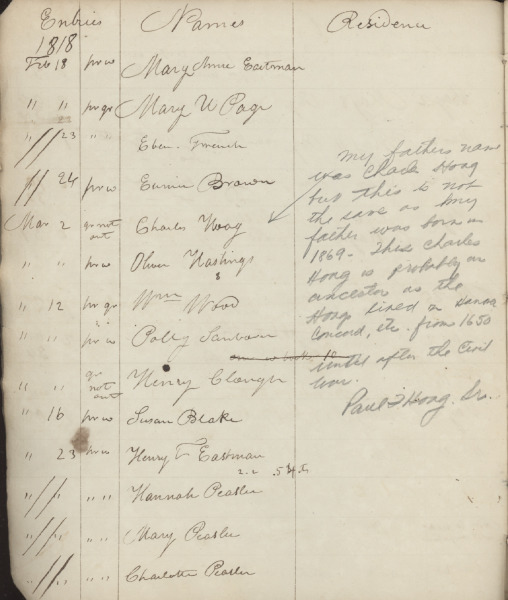 Entries Names Residence
1818
Feb 18 pr w Mary Anne Eastman
" " pr gr Mary W Page
" // 23 " " Eben. French
// 24 pr w Eunice Brown
Mar 2 gr not out Charles Hoag
" " pr w Oliver Hastings
" 12 pr gr Wm Wood
" " pr w Polly Sanborn
" " gr not out Henry Clough
" 16 pr w Susan Blake
" 23 pr w Henry Eastman
" // " " " Hannah Peaslee
" // " " " Mary Peaslee
" // " " " Charlotte Peaslee
My fathers name
was Charles Hoag
but this is not
the same as my
father was born in
1869. This Charles
Hoag is probably an
ancestor as the
Hoags lived in
Concord, etc. from 1650
until after the Civil
War.
Paul F Hoag, Sr.